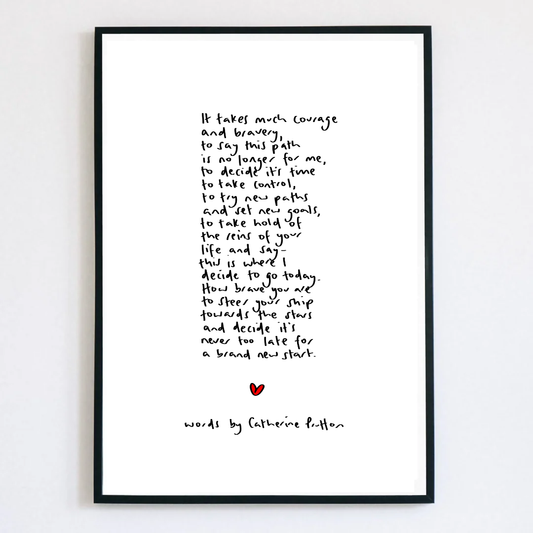 It takes much courage
and bravery,
to say this path
is no longer for me,
to decide it's time
to take control,
to try new paths
and set new goals,
to take hold of
the reins of your
life and say-
this is where I
decide to go today.
How brave you are
to steer your ship
towards the stars
and decide it's
never too late for
a brand new start.
words by Catherine Prutton